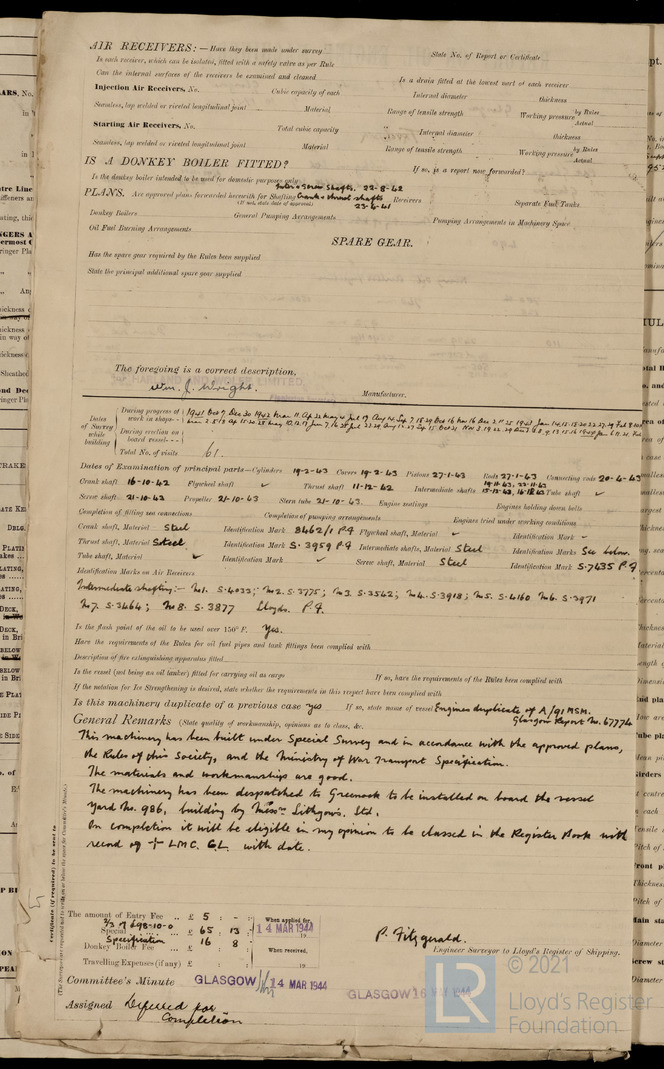 AIR RECEIVERS:—Have they been made under survey State No. of Report or Certificate
Is each receiver, which can be isolated, fitted with a safety valve as per Rule
Can the internal surfaces of the receivers be examined and cleaned Is a drain fitted at the lowest part of each receiver
Injection Air Receivers, No. Cubic capacity of each Internal diameter thickness
Seamless, lap welded or riveted longitudinal joint Material Range of tensile strength Working pressure by Rules Actual
Starting Air Receivers, No. Total cubic capacity Internal diameter thickness
Seamless, lap welded or riveted longitudinal joint Material Range of tensile strength Working pressure by Rules Actual
IS A DONKEY BOILER FITTED? If so, is a report now forwarded?
Is the donkey boiler intended to be used for domestic purposes only
Inter & Screw Shafts. 22-8-42
PLANS. Are approved plans forwarded herewith for Shafting Crank & thrust shafts Receivers Separate Fuel Tanks
(If not, state date of approval) 23-6-41
Donkey Boilers General Pumping Arrangements Pumping Arrangements in Machinery Space
Oil Fuel Burning Arrangements
SPARE GEAR.
Has the spare gear required by the Rules been supplied
State the principal additional spare gear supplied
The foregoing is a correct description,
Wm. J. Wright. Manufacturer.
Dates of Survey while building
During progress of work in shops-- 1941 Oct 7 Dec 30 1942 Mar 11
During erection on board vessel---
Total No. of visits 61.
Dates of Examination of principal parts—Cylinders 19-2-43 Covers 19-2-43 Pistons 27-1-43 Rods 27-1-43 Connecting rods 20-4-43
Crank shaft 16-10-42 Flywheel shaft ✓ Thrust shaft 11-12-42 Intermediate shafts Tube shaft ✓
Screw shaft 21-10-43 Propeller 21-10-43 Stern tube 21-10-43 Engine seatings Engines holding down bolts
Completion of fitting sea connections Completion of pumping arrangements Engines tried under working conditions
Crank shaft, Material Steel Identification Mark 8462/1 P.F Flywheel shaft, Material ✓ Identification Mark -
Thrust shaft, Material Steel Identification Mark S.3959 P.F Intermediate shafts, Material Steel Identification Marks See below.
Tube shaft, Material ✓ Identification Mark ✓ Screw shaft, Material Steel Identification Mark S.7435 P.F
Identification Marks on Air Receivers
Intermediate shafting:- No1. S.4033; No2. S.3775; No3. S.3542; No4. S.3918; No5. S.4160 No6. S.3971
No7. S.3464; No8. S.3877 Lloyds. P.F.
Is the flash point of the oil to be used over 150° F. Yes.
Have the requirements of the Rules for oil fuel pipes and tank fittings been complied with
Description of fire extinguishing apparatus fitted
Is the vessel (not being an oil tanker) fitted for carrying oil as cargo If so, have the requirements of the Rules been complied with
If the notation for Ice Strengthening is desired, state whether the requirements in this respect have been complied with
Is this machinery duplicate of a previous case Yes If so, state name of vessel Engines duplicate of A/91 MSM.
Glasgow Report No. 67774
General Remarks (State quality of workmanship, opinions as to class, &c.
This machinery has been built under Special Survey and in accordance with the approved plans,
the Rules of this Society, and the Ministry of War Transport Specification.
The materials and workmanships are good.
The machinery has been despatched to Greenock to be installed on board the vessel
Yard No. 986, building by Messrs Lithgows, Ltd.
On completion it will be eligible in my opinion to be classed in the Register Book with
record of + LMC. CL with date.
The amount of Entry Fee .. £ 5 : - :
2/3 of £98-10-0
Special .. £ 65 : 13 :
Specification 16 : 8
Donkey Boiler Fee £
Travelling Expenses (if any) £
When applied for, 14 MAR 1944
When received, 19
P. Fitzgerald.
Engineer Surveyor to Lloyd's Register of Shipping.
Committee's Minute GLASGOW 14 MAR 1944
GLASGOW 16 MAY 1944
Assigned Deferred for
Completion
LR © 2021
Lloyd's Register
Foundation